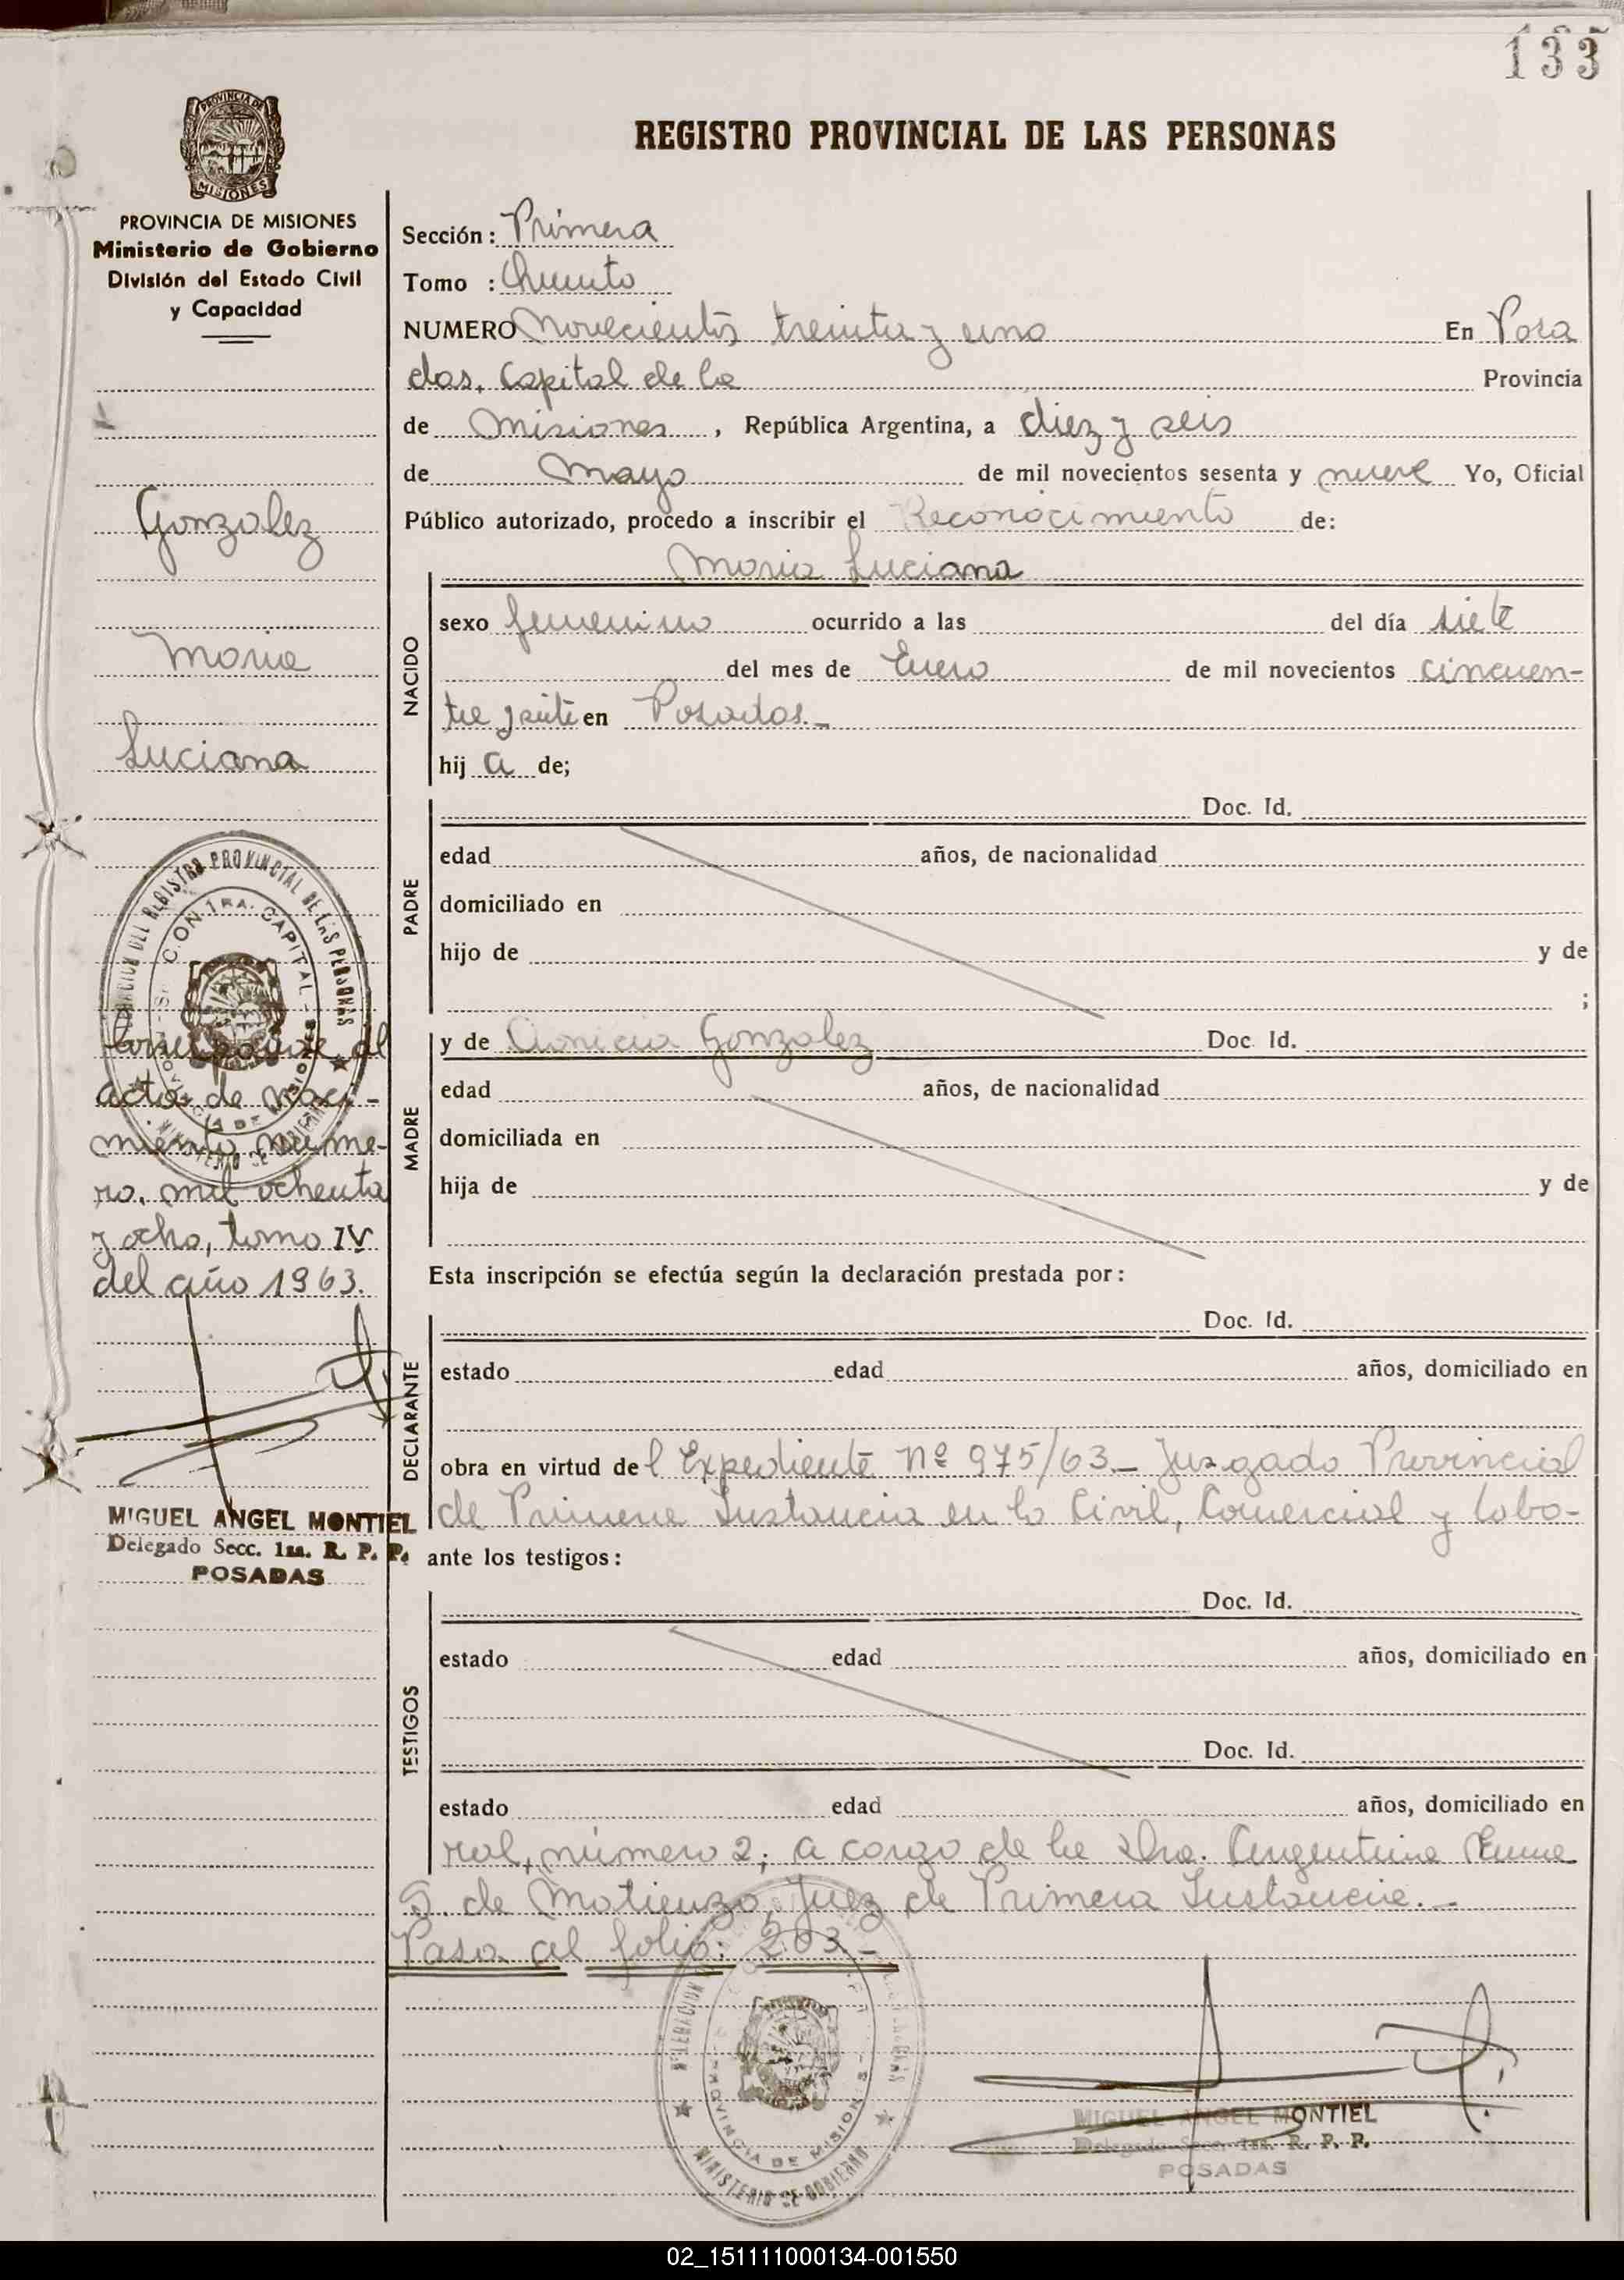 133
PROVINCIA DE
MISIONES
REGISTRO PROVINCIAL DE LAS PERSONAS
PROVINCIA DE MISIONES
Ministerio de Gobierno
División del Estado Civil
y Capacidad
Gonzalez
Maria
Luciana
acta de naci-
miento núme-
ro, mil ochenta
y ocho, tomo IV
del año 1963.
MIGUEL ANGEL MONTIEL
Delegado Secc. 1ra. R. P. P.
POSADAS
Sección: Primera
Tomo : Quinto
NUMERO Novecientos treinta y uno En Posa
das, Capital de la Provincia
de Misiones, República Argentina, a diez y seis
de Mayo de mil novecientos sesenta y nueve Yo, Oficial
Público autorizado, procedo a inscribir el Reconocimiento de:
Maria Luciana
NACIDO
sexo femenino ocurrido a las del día siete
del mes de Enero de mil novecientos cincuen-
ta y siete en Posadas.-
hij a de;
PADRE
Doc. Id.
edad años, de nacionalidad
domiciliado en
hijo de y de
;
MADRE
y de Gonzalez Doc. Id.
edad años, de nacionalidad
domiciliada en
hija de y de
Esta inscripción se efectúa según la declaración prestada por:
DECLARANTE
Doc. Id.
estado edad años, domiciliado en
obra en virtud del Expediente Nº 975/63.- Juzgado Provincial
de Primera Instancia en lo Civil, Comercial y Labo-
ante los testigos:
TESTIGOS
Doc. Id.
estado edad años, domiciliado en
Doc. Id.
estado edad años, domiciliado en
ral, número 2; a cargo de la Dra. Argentina
G. de Matienzo, Juez de Primera Instancia.-
Pasa al folio: 203.-
PROVINCIA DE MISIONES
MINISTERIO DE GOBIERNO
MIGUEL ANGEL MONTIEL
Delegado Secc. 1ra. R. P. P.
POSADAS
02_151111000134-001550